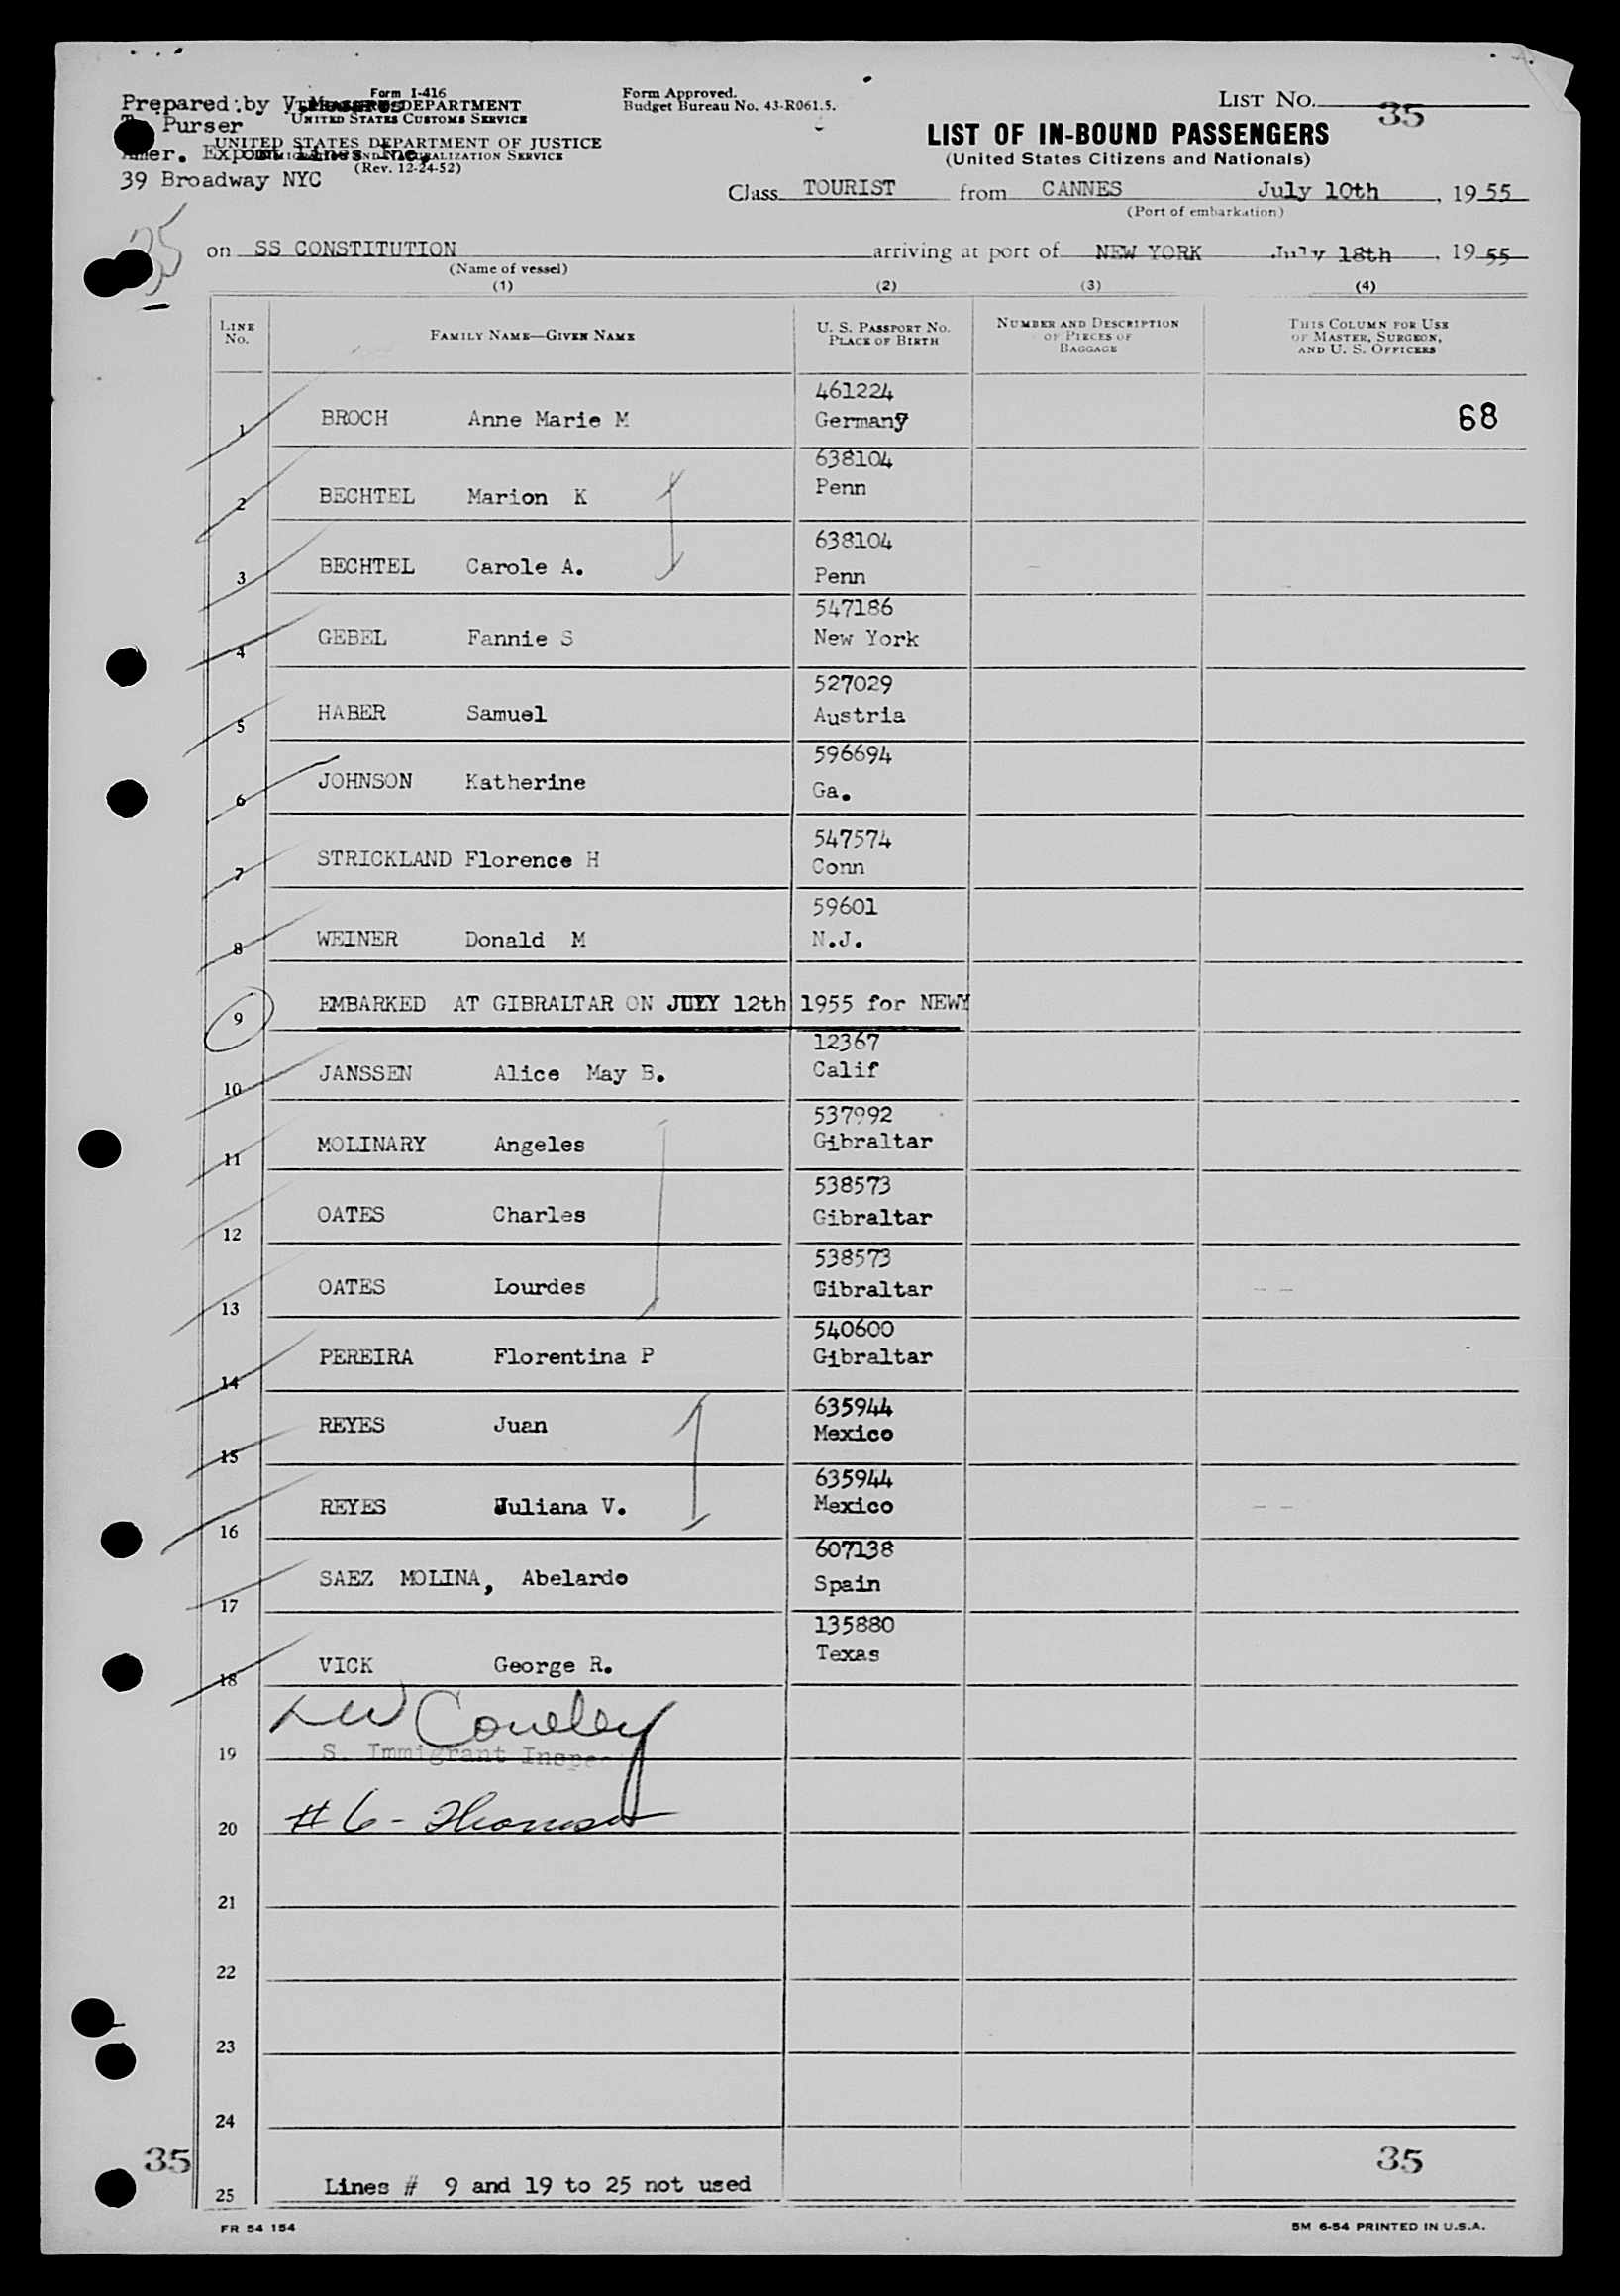 Form I-416
TREASURY DEPARTMENT
UNITED STATES CUSTOMS SERVICE
UNITED STATES DEPARTMENT OF JUSTICE
IMMIGRATION AND NATURALIZATION SERVICE
(Rev. 12-24-52)
Prepared by
Purser
Amer. Export Lines Inc,
39 Broadway NYC
Form Approved.
Budget Bureau No. 43-R061.5.
LIST NO. 35
LIST OF IN-BOUND PASSENGERS
(United States Citizens and Nationals)
Class TOURIST from CANNES July 10th, 1955
(Port of embarkation)
35
on SS CONSTITUTION arriving at port of NEW YORK July 18th, 1955
(Name of vessel)
(1) (2) (3) (4)
LINE NO. FAMILY NAME—GIVEN NAME U. S. PASSPORT NO. PLACE OF BIRTH NUMBER AND DESCRIPTION OF PIECES OF BAGGAGE THIS COLUMN FOR USE OF MASTER, SURGEON, AND U. S. OFFICERS
1 BROCH Anne Marie M 461224 Germany 68
2 BECHTEL Marion K 638104 Penn
3 BECHTEL Carole A. 638104 Penn
4 GEBEL Fannie S 547186 New York
5 HABER Samuel 527029 Austria
6 JOHNSON Katherine 596694 Ga.
7 STRICKLAND Florence H 547574 Conn
8 WEINER Donald M 59601 N.J.
9 EMBARKED AT GIBRALTAR ON JULY 12th 1955 for NEWY
10 JANSSEN Alice May B. 12367 Calif
11 MOLINARY Angeles 537992 Gibraltar
12 OATES Charles 538573 Gibraltar
13 OATES Lourdes 538573 Gibraltar
14 PEREIRA Florentina P 540600 Gibraltar
15 REYES Juan 635944 Mexico
16 REYES Juliana V. 635944 Mexico
17 SAEZ MOLINA, Abelardo 607138 Spain
18 VICK George R. 135880 Texas
19 S. Immigrant Inspe
20 #6-
21
22
23
24
35 35
25 Lines # 9 and 19 to 25 not used
FR 54 154 5M 6-54 PRINTED IN U.S.A.